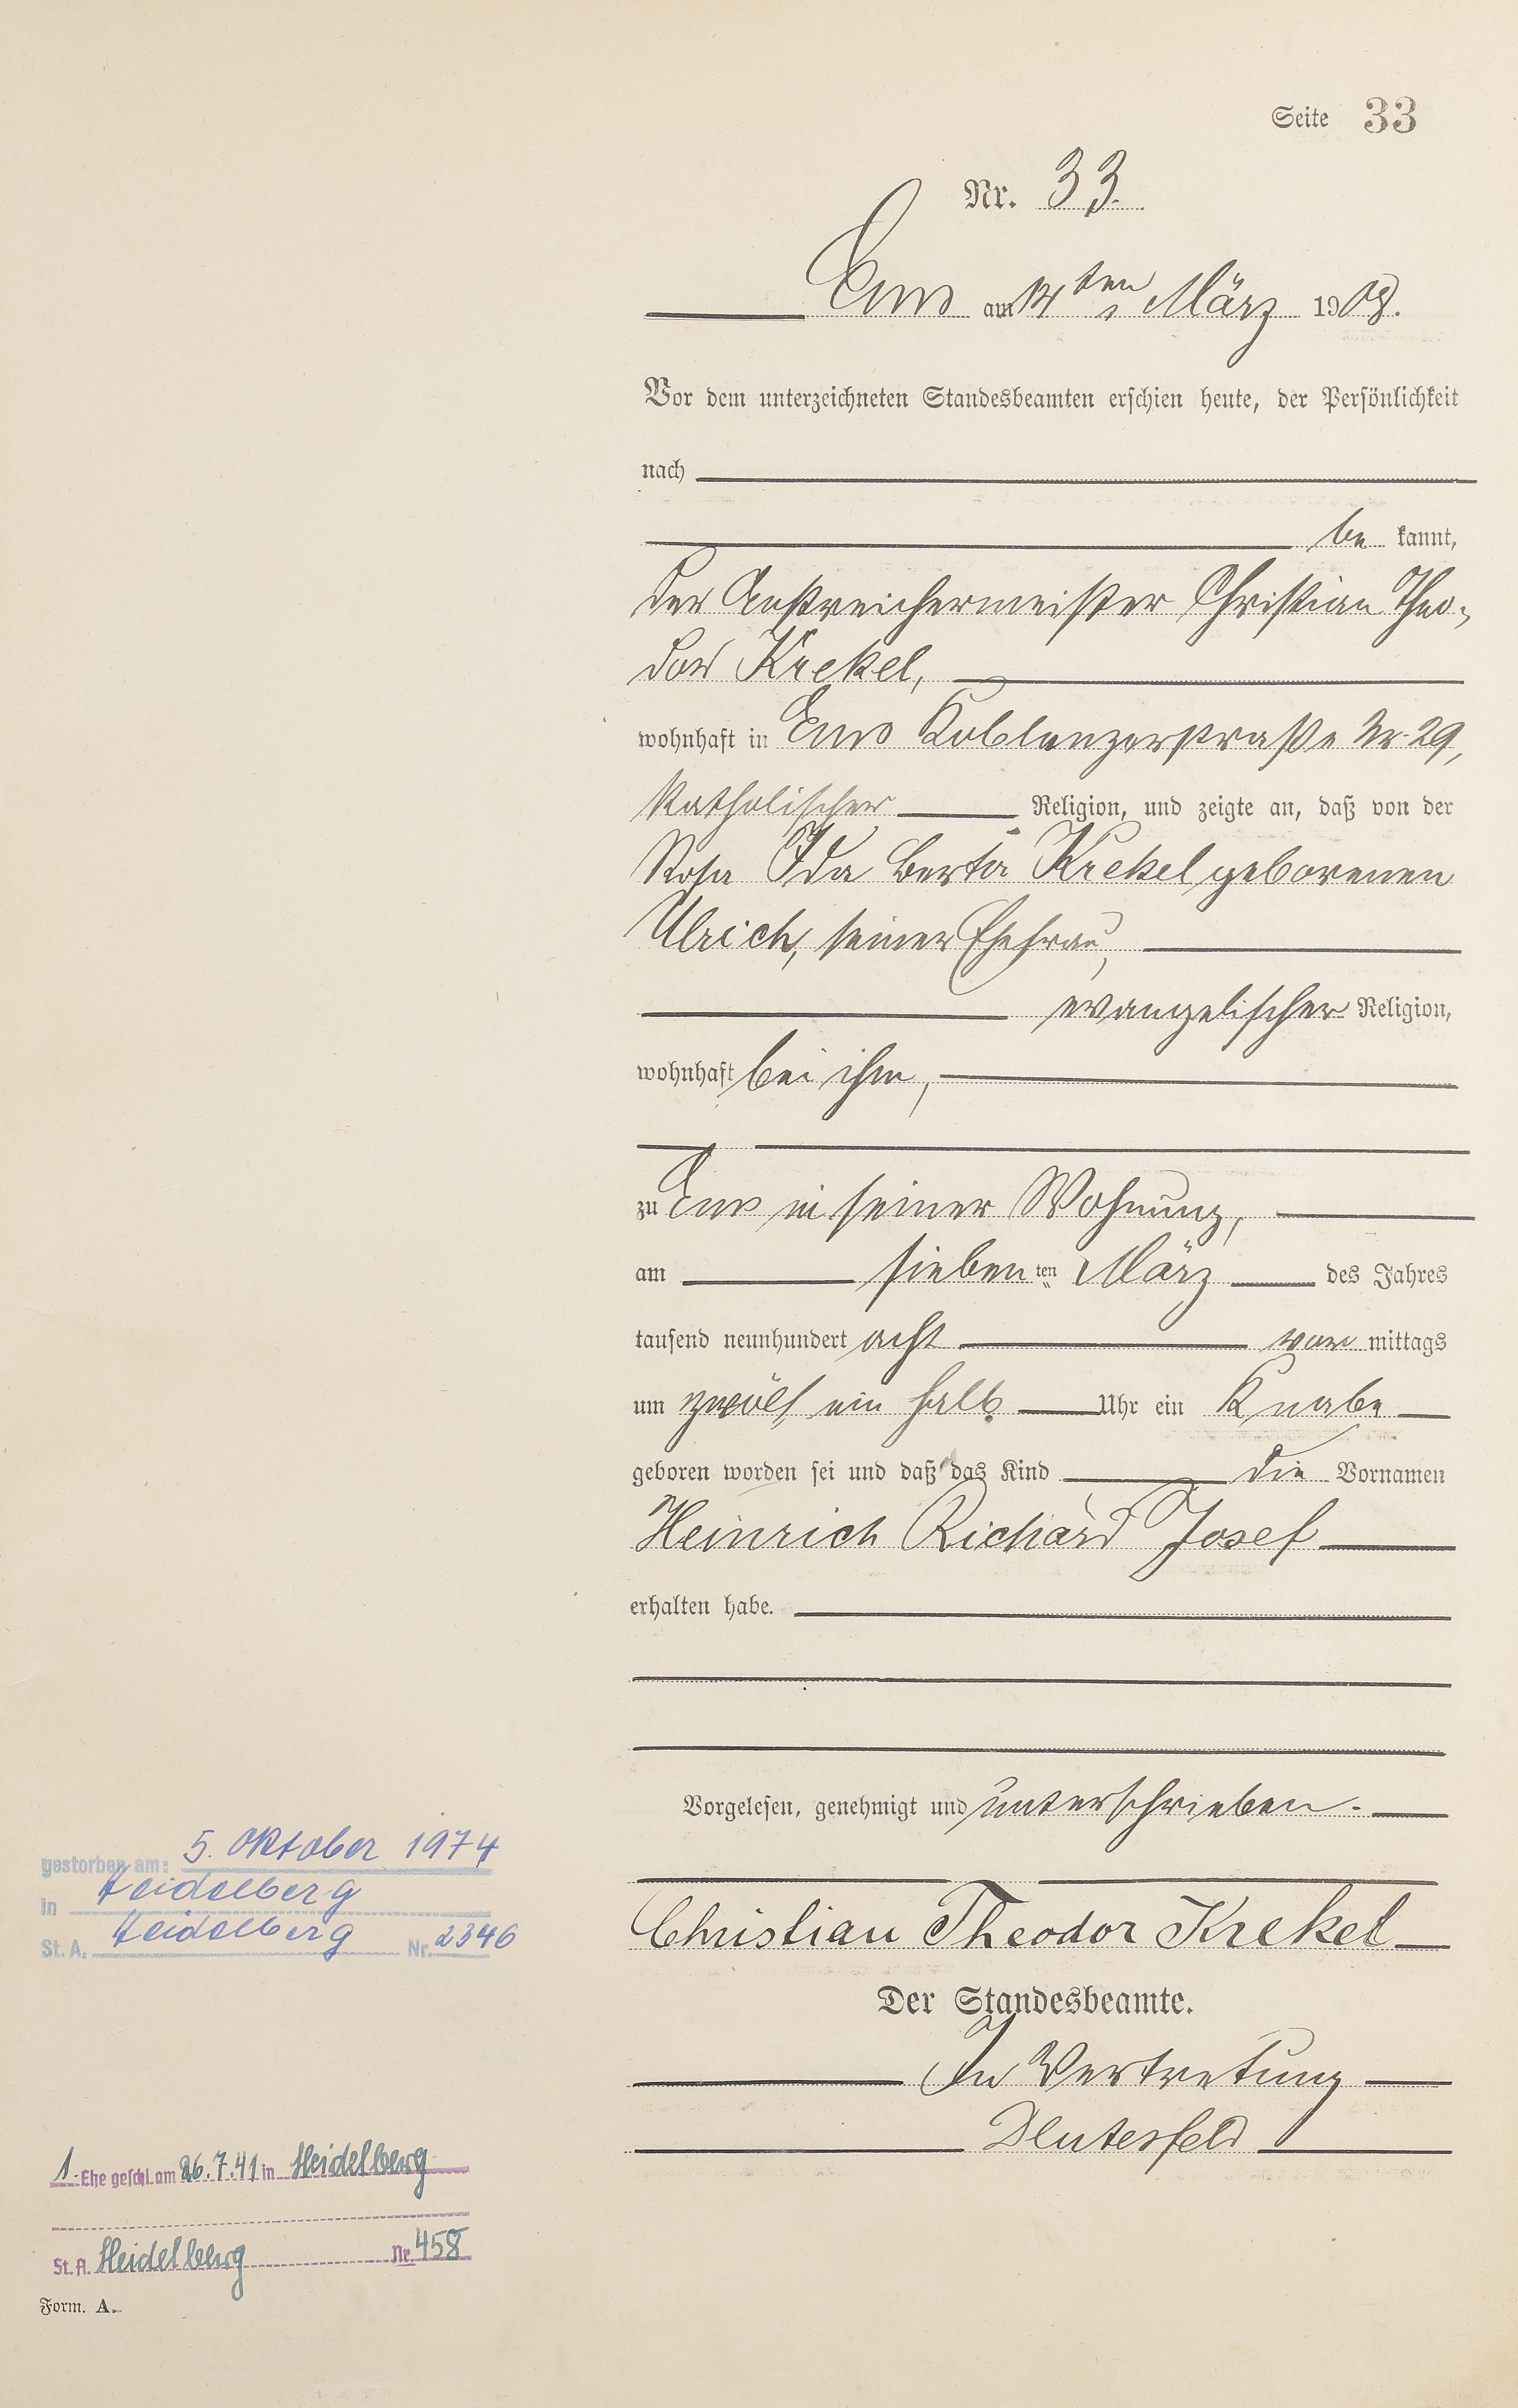 Seite 33
Nr. 33.
Ems am 14ten März 1908.
Vor dem unterzeichneten Standesbeamten erschien heute, der Persönlichkeit
nach
be kannt,
der Anstreichermeister Christian Theo-
dor Krekel,
wohnhaft in Ems Koblenzerstraße Nr. 29,
katholischer Religion, und zeigte an, daß von der
Rosa Ida Berta Krekel geborenen
Ulrich, seiner Ehefrau,
evangelischer Religion,
wohnhaft bei ihm,
zu Ems in seiner Wohnung,
am sieben ten März des Jahres
tausend neunhundert acht vor mittags
um zwölf ein halb Uhr ein Knabe
geboren worden sei und daß das Kind die Vornamen
Heinrich Richard Josef
erhalten habe.
Vorgelesen, genehmigt und unterschrieben.
Christian Theodor Krekel
Der Standesbeamte.
In Vertretung
gestorben am: 5. Oktober 1974
in Heidelberg
St. A. Heidelberg Nr. 2346
1. Ehe geschl. am 26.7.41 in Heidelberg
St. A. Heidelberg Nr. 458
Form. A.